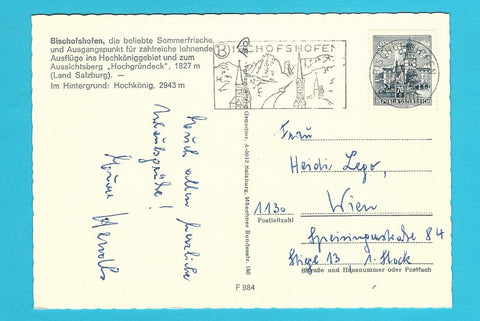 Bischofshofen, die beliebte Sommerfrische
und Ausgangspunkt für zahlreiche lohnende
Ausflüge ins Hochköniggebiet und zum
Aussichtsberg „Hochgründeck", 1827 m
(Land Salzburg). —
Im Hintergrund: Hochkönig, 2943 m
BISCHOFSHOFEN
70
Euch allen herzliche
Urlaubsgrüße!
A-5013 Salzburg, Münchner Bundesstr. 156
Frau
Heidi Lego,
1130 Wien
Postleitzahl
Speisingerstraße 84
Stiege 13 1. Stock
(Straße und Hausnummer oder Postfach)
F 984